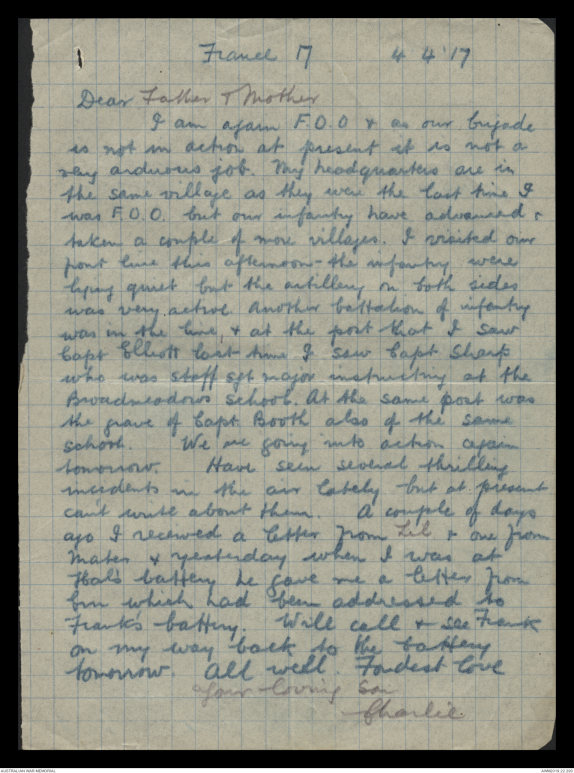 France 17 4 4 '17
Dear Father & Mother
I am again F.O.O & as our brigade
is not in action at present it is not a
very arduous job. My headquarters are in
the same village as they were the last time I
was F.O.O. but our infantry have advanced &
taken a couple of more villages. I visited our
front line this afternoon - the infantry were
lying quiet but the artillery on both sides
was very active Another battalion of infantry
was in the line, & at the post that I saw
Capt Elliott last time I saw Capt Sharp
who was staff sgt major instructing at the
Broadmeadows School. At the same post was
the grave of Capt. Booth also of the same
school. We are going into action again
tomorrow. Have seen several thrilling
incidents in the air lately but at present
cant write about them. A couple of days
ago I received a letter from Lil & one from
Mater & yesterday when I was at
Hal's battery he gave me a letter from
which had been addressed to
Frank's battery. Will call & see Frank
on my way back to the battery
tomorrow. All well. Fondest love
Your loving Son
Charlie.
AUSTRALIAN WAR MEMORIAL